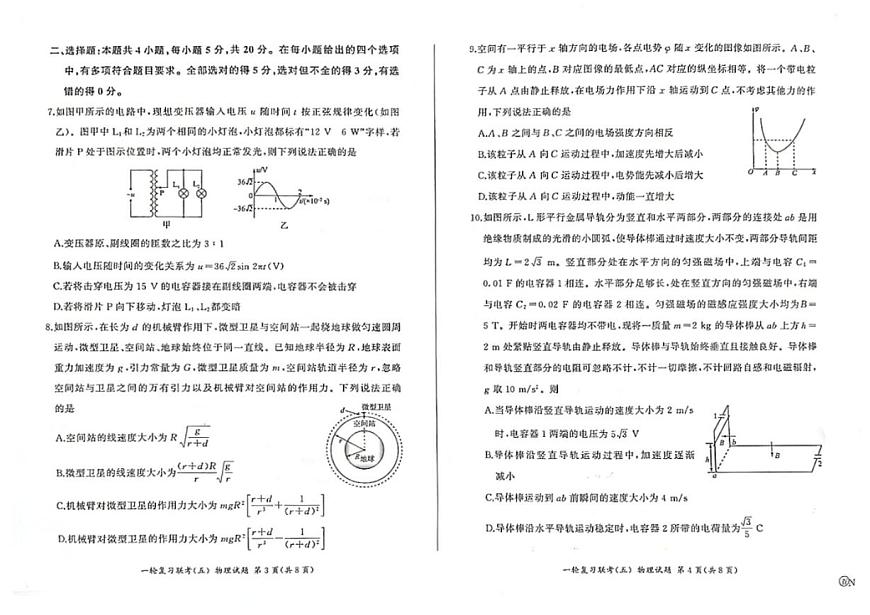 二、选择题:本题共4小题,每小题5分,共20分。在每小题给出的四个选项
中,有多项符合题目要求。全部选对的得5分,选对但不全的得3分,有选
错的得0分。
7.如图甲所示的电路中,理想变压器输入电压u随时间t按正弦规律变化(如图
乙)。图甲中L₁和L₂为两个相同的小灯泡,小灯泡都标有“12 V 6 W”字样,若
滑片P处于图示位置时,两个小灯泡均正常发光,则下列说法正确的是
~u P L₁ L₂
甲
u/V
36√2
0 1 2 t/(×10⁻² s)
-36√2
乙
A.变压器原、副线圈的匝数之比为3∶1
B.输入电压随时间的变化关系为u=36√2sin 2πt(V)
C.若将击穿电压为15 V的电容器接在副线圈两端,电容器不会被击穿
D.若将滑片P向下移动,灯泡L₁、L₂都变暗
8.如图所示,在长为d的机械臂作用下,微型卫星与空间站一起绕地球做匀速圆周
运动,微型卫星、空间站、地球始终位于同一直线。已知地球半径为R,地球表面
重力加速度为g,引力常量为G,微型卫星质量为m,空间站轨道半径为r,忽略
空间站与卫星之间的万有引力以及机械臂对空间站的作用力。下列说法正确
的是
d 微型卫星
空间站
r
R 地球
A.空间站的线速度大小为R√(g/(r+d))
B.微型卫星的线速度大小为(r+d)R/r √(g/r)
C.机械臂对微型卫星的作用力大小为mgR²[(r+d)/r³+1/(r+d)²]
D.机械臂对微型卫星的作用力大小为mgR²[(r+d)/r³-1/(r+d)²]
一轮复习联考(五) 物理试题 第3页(共8页)
9.空间有一平行于x轴方向的电场,各点电势φ随x变化的图像如图所示。A、B、
C为x轴上的点,B对应图像的最低点,AC对应的纵坐标相等。将一个带电粒
子从A点由静止释放,在电场力作用下沿x轴运动到C点,不考虑其他力的作
用,下列说法正确的是
A.A、B之间与B、C之间的电场强度方向相反
B.该粒子从A向C运动过程中,加速度先增大后减小
C.该粒子从A向C运动过程中,电势能先减小后增大
D.该粒子从A向C运动过程中,动能一直增大
φ
O A B C x
10.如图所示,L形平行金属导轨分为竖直和水平两部分,两部分的连接处ab是用
绝缘物质制成的光滑的小圆弧,使导体棒通过时速度大小不变,两部分导轨间距
均为L=2√3 m。竖直部分处在水平方向的匀强磁场中,上端与电容C₁=
0.01 F的电容器1相连。水平部分足够长,处在竖直方向的匀强磁场中,右端
与电容C₂=0.02 F的电容器2相连。匀强磁场的磁感应强度大小均为B=
5 T。开始时两电容器均不带电,现将一质量m=2 kg的导体棒从ab上方h=
2 m处紧贴竖直导轨由静止释放。导体棒与导轨始终垂直且接触良好。导体棒
和导轨竖直部分的电阻可忽略不计,不计一切摩擦,不计回路自感和电磁辐射,
g取10 m/s²。则
A.当导体棒沿竖直导轨运动的速度大小为2 m/s
时,电容器1两端的电压为5√3 V
B.导体棒沿竖直导轨运动过程中,加速度逐渐
减小
C.导体棒运动到ab前瞬间的速度大小为4 m/s
D.导体棒沿水平导轨运动稳定时,电容器2所带的电荷量为√3/5 C
1
B b
h
a
B
2
一轮复习联考(五) 物理试题 第4页(共8页)